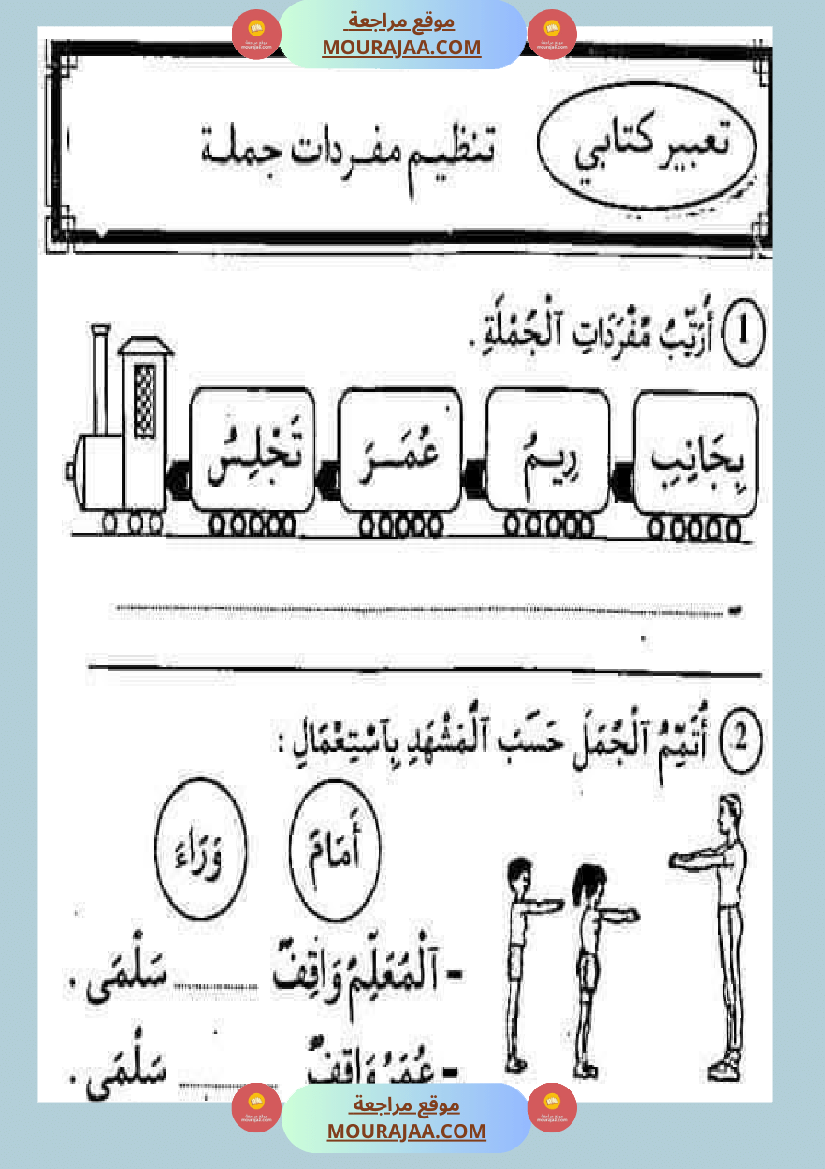 موقع مراجعة
MOURAJAA.COM
تعبير كتابي
تنظيم مفردات جملة
1 أُرَتِّبُ مُفْرَدَاتِ ٱلْجُمْلَةِ .
بِجَانِبِ رِيمُ عُمَرَ تَجْلِسُ
-
2 أُتَمِّمُ ٱلْجُمَلَ حَسَبَ ٱلْمَشْهَدِ بِٱسْتِعْمَالِ :
أَمَامَ وَرَاءَ
- ٱلْمُعَلِّمُ وَاقِفٌ ........ سَلْمَى .
- عُمَرُ وَاقِفٌ ........ سَلْمَى .
موقع مراجعة
MOURAJAA.COM